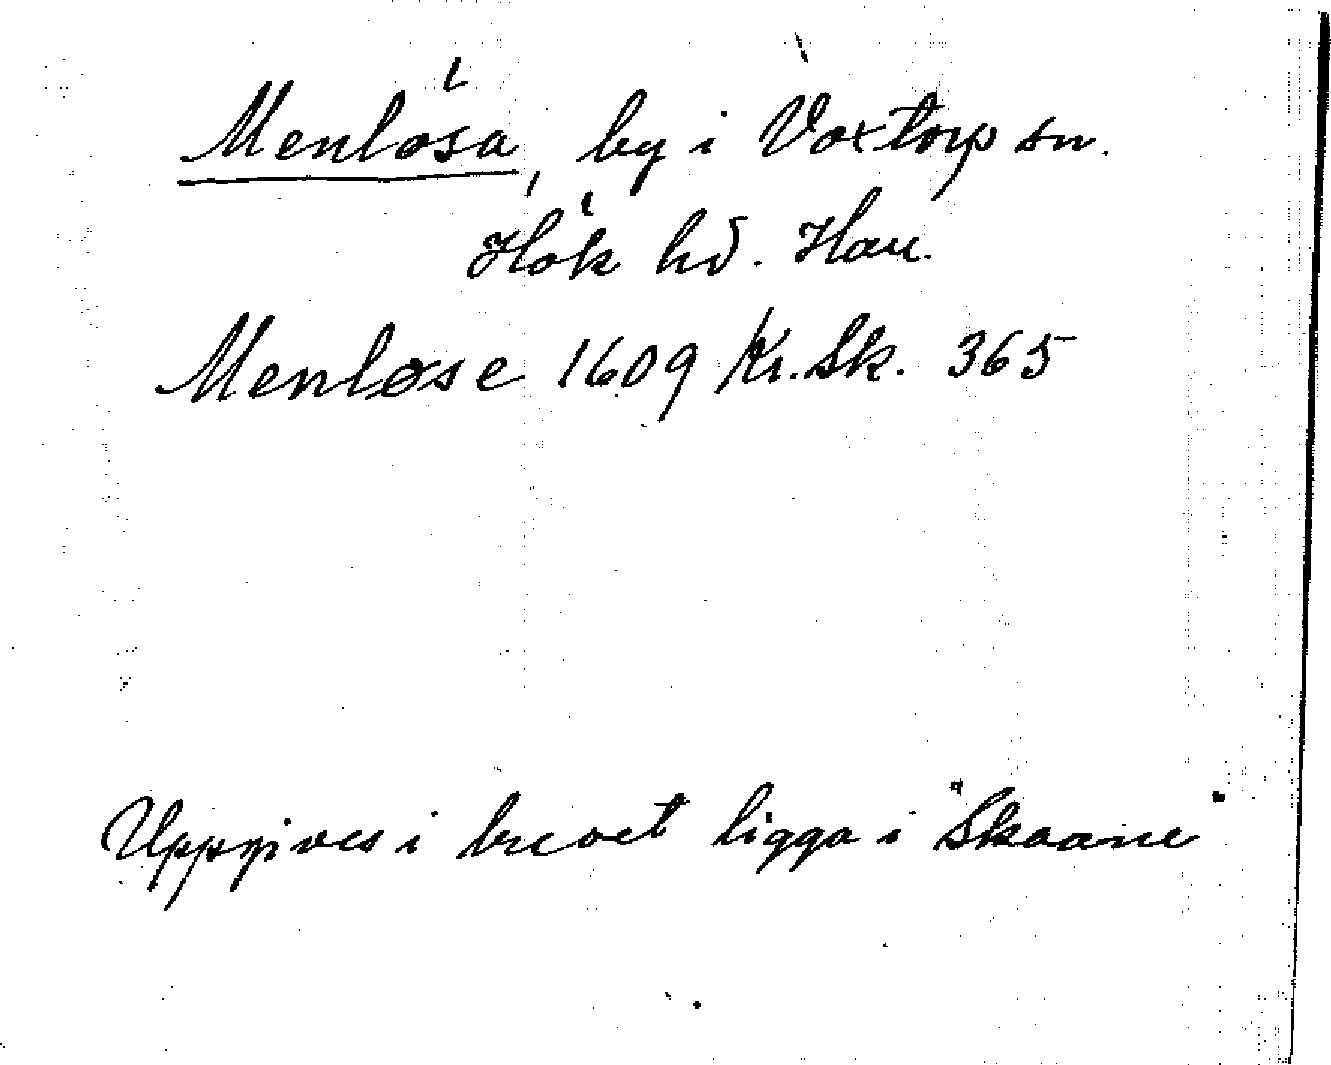 Menlösa, by i Voxtorp sn.
Hök hd. Hall.
Menløse 1609 Kr. Sk. 365
Uppgives i brevet ligga i "Skaane"